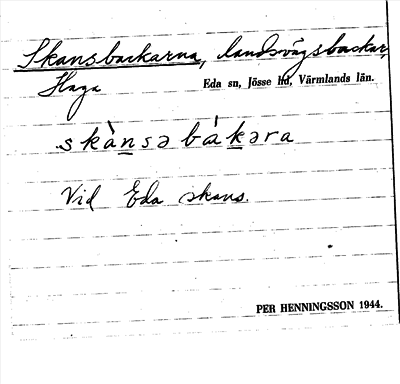 Skansbackarna, landsvägsbackar,
Haga Eda sn, Jösse hd, Värmlands län.
skànsə bàkəra
Vid Eda skans.
PER HENNINGSSON 1944.